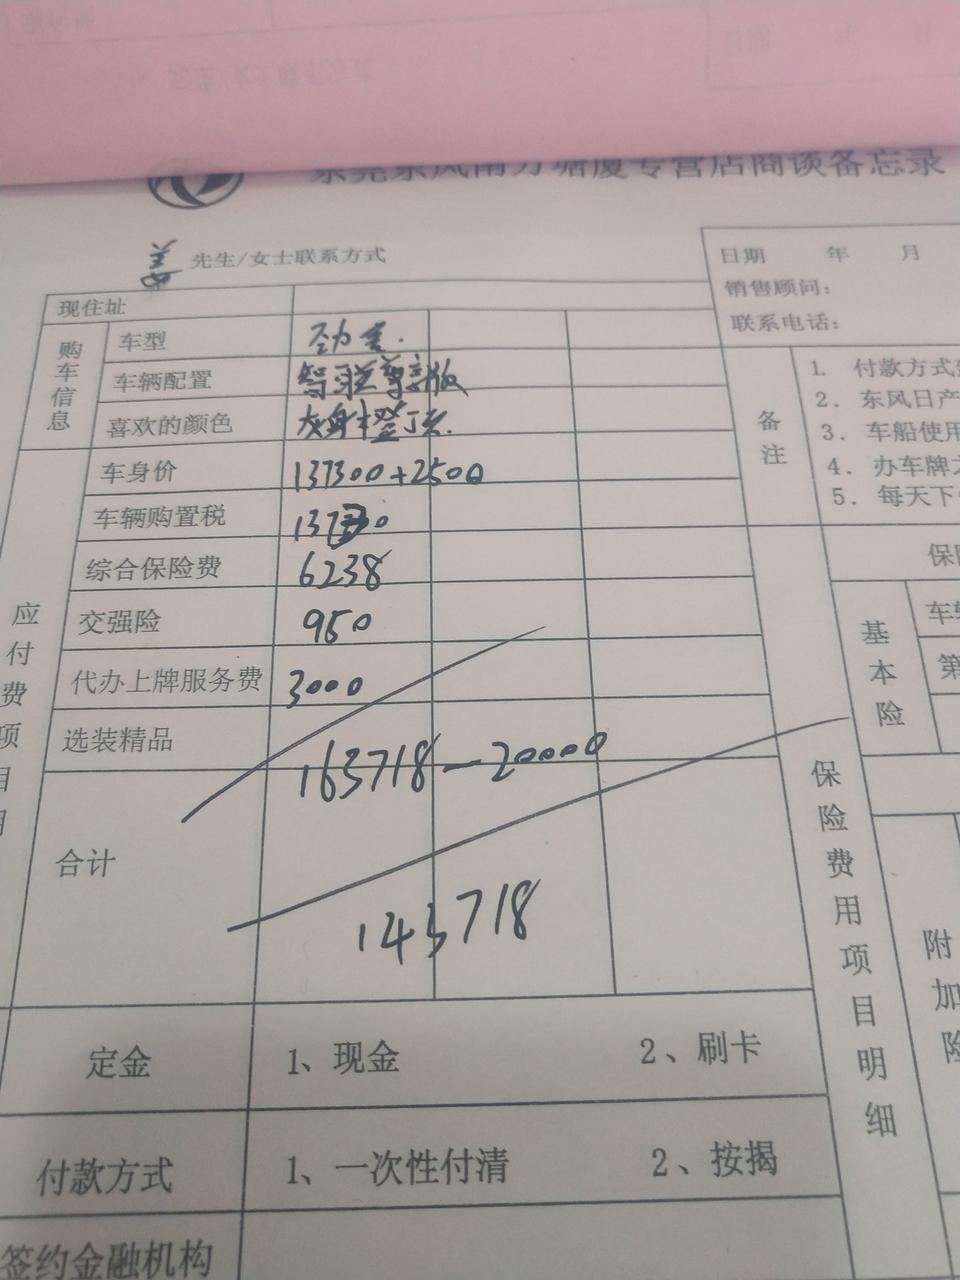 东莞东风南方塘厦专营店商谈备忘录
姜 先生/女士联系方式
日期 年 月
销售顾问：
联系电话：
现住址
购车信息
车型 劲客.
车辆配置 智联尊享版
喜欢的颜色 灰身橙顶.
备注
1. 付款方式
2. 东风日产
3. 车船使用
4. 办车牌
5. 每天下
应付费项目
车身价 137300+2500
车辆购置税
综合保险费 6238
交强险 950
代办上牌服务费 3000
选装精品
163718-20000
合计
143718
保险费用项目明细
保
基本险
车
第
附加险
定金 1、现金 2、刷卡
付款方式 1、一次性付清 2、按揭
签约金融机构